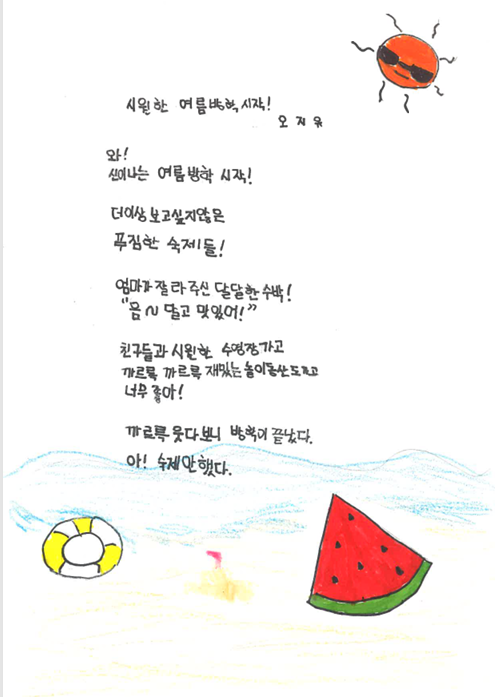 시원한 여름방학 시작!
오지유
와!
신이나는 여름방학 시작!
더이상 보고싶지않은
푸짐한 숙제들!
엄마가 잘라주신 달달한 수박!
"음~ 달고 맛있어!"
친구들과 시원한 수영장가고
까르륵 까르륵 재밌는 놀이동산도가고
너무 좋아!
까르륵 웃다보니 방학이 끝났다.
아! 숙제안했다.